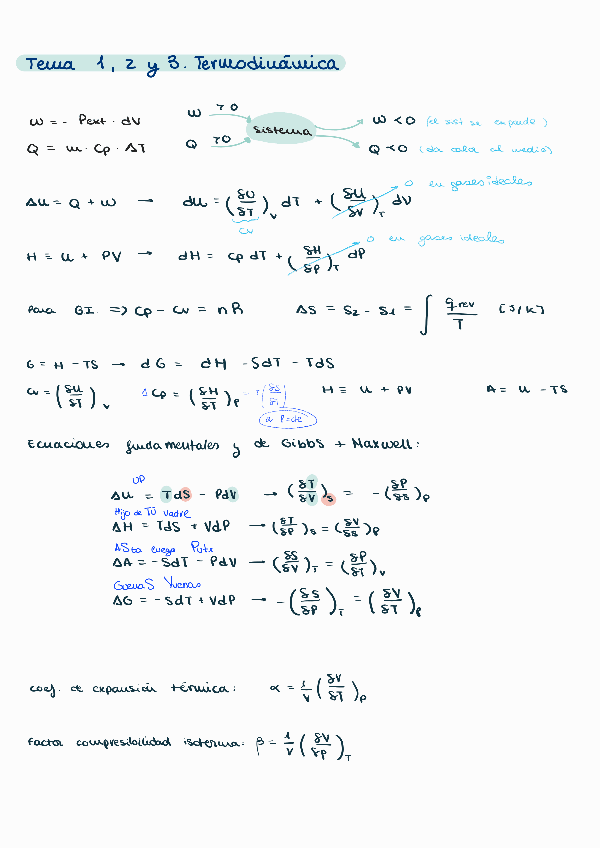 Tema 1, 2 y 3. Termodinámica
W = - Pext · dV
W > 0
sistema
W < 0 (el sist se expande)
Q = m · Cp · ΔT
Q > 0
Q < 0 (da calor al medio)
ΔU = Q + W → dU = (δU/δT)v dT + (δU/δV)T dV
0 en gases ideales
Cv
H = U + PV → dH = Cp dT + (δH/δP)T dP
0 en gases ideales
Para GI. => Cp - Cv = nR ΔS = S2 - S1 = ∫ qrev/T [J/K]
G = H - TS → dG = dH - SdT - TdS
Cv = (δU/δT)v Cp = (δH/δT)P H = U + PV A = U - TS
a P=cte
Ecuaciones fundamentales y de Gibbs + Maxwell:
UP
ΔU = TdS - PdV → (δT/δV)s = -(δP/δS)P
Hijo de TU Vadre
ΔH = TdS + VdP → (δT/δP)s = (δV/δS)P
ASta luego Puta
ΔA = -SdT - PdV → (δS/δV)T = (δP/δT)v
GuenaS Vuenas
ΔG = -SdT + VdP → -(δS/δP)T = (δV/δT)P
coef. de expansión térmica: α = 1/V (δV/δT)P
Factor compresibilidad isoterma: β = 1/V (δV/δP)T